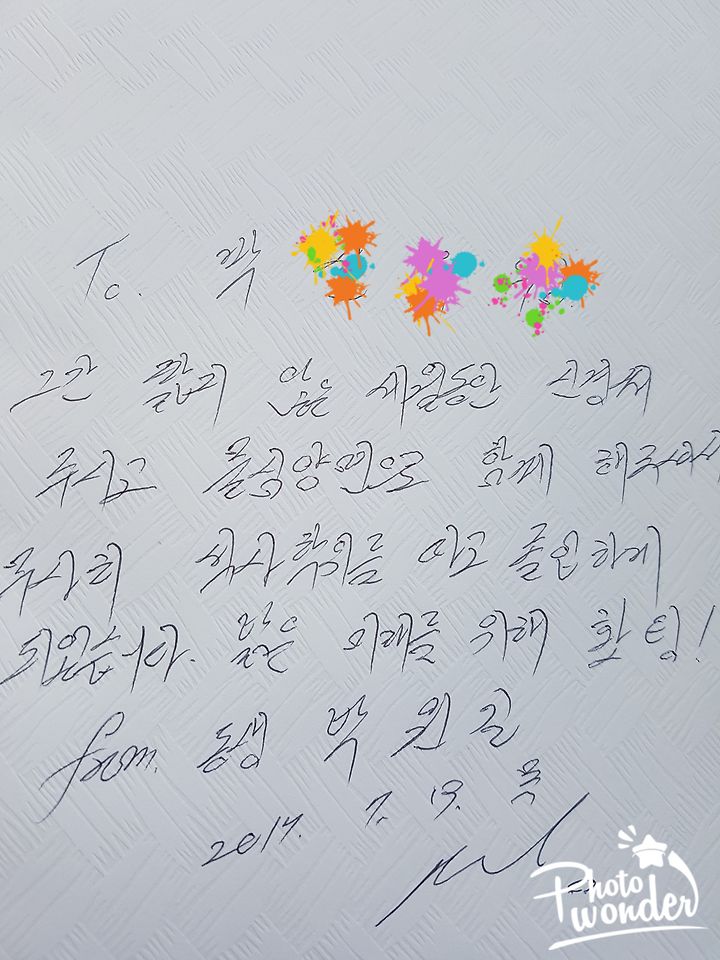 To. 박
그간 짧지 않은 세월동안 신경써
주시고 물심양면으로 함께 해주셔서
무사히 석사학위를 따고 졸업하게
되었습니다. 밝은 미래를 위해 화팅!
from. 동생 박 원 길
2017. 7. 13. 목
Photo wonder